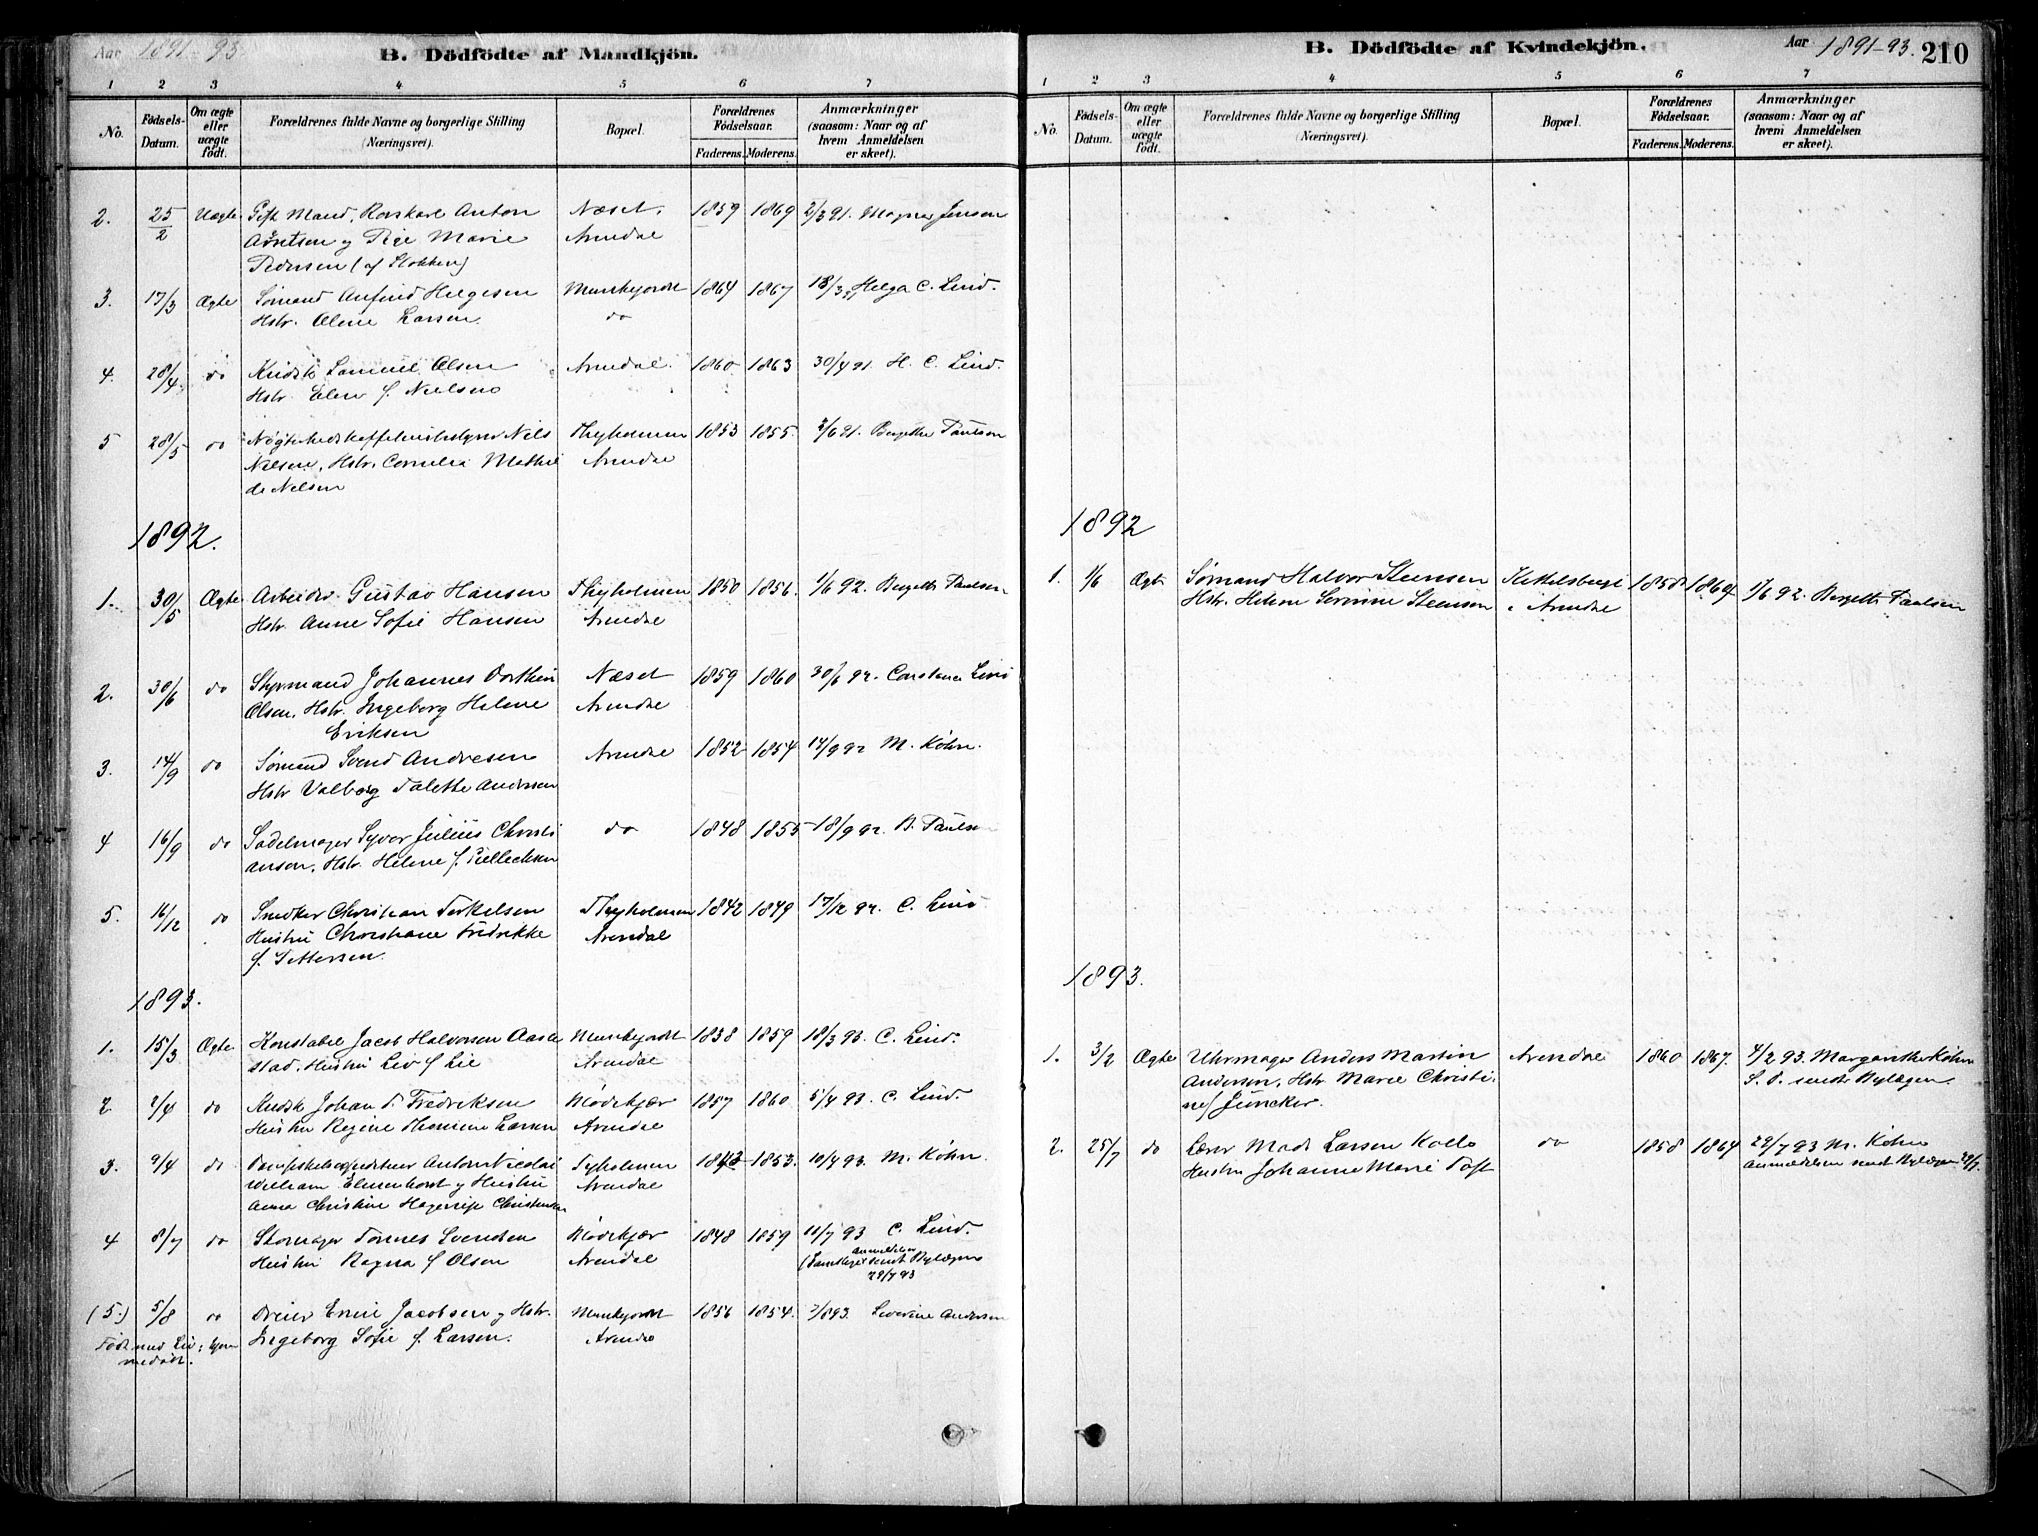 Aar 1891-93
B. Dödfödte af Mandkjön.
1 2 3 4 5 6 7
No.
Födsels-Datum.
Om ægte eller uægte født.
Forældrenes fulde Navne og borgerlige Stilling (Næringsvei).
Bopæl.
Forældrenes Födselsaar.
Faderens. Moderens.
Anmærkninger (saasom: Naar og af hvem Anmeldelsen er skeet).
2. 25/2 Uægte Gift Mand, Anton Næset, 1859 1869 2/3 91. Jensen
og Pige Marie Arendal
Pedersen (af Stokken)
3. 17/3 Ægte Sømand Anfind Helgesen Munkejordet 1864 1867 18/3 91 Helga C. Lind.
Hstr. Oline Larsen. do
4. 28/4 do Samuel Olsen Arendal. 1860 1863 30/4 91. H. C. Lind.
Hstr. Elen f. Nielsen
5 28/5 do Nils Thyholmen 1853 1855. 2/6 91. Bergethe Paulsen
Nielsen, Hstr. Cornelia Mathil Arendal
de Nielsen
1892.
1. 30/5 Ægte Arbeider Gustav Hansen Thyholmen 1850 1856. 1/6 92. Bergethe Paulsen
Hstr. Anne Sofie Hansen Arendal
2. 30/6 do Styrmand Johannes Næset 1859 1860 30/6 92. Constance Lind
Olsen, Hstr. Ingeborg Helene Arendal
Eriksen
3. 14/9 do Sømand Svend Andresen Arendal 1852 1854 14/9 92 M. Köhn.
Hstr Valborg Talette Andresen
4 16/9 do Sadelmager Syver Julius Christi do 1848 1855 18/9 92. B. Paulsen
ansen, Hstr. Helene f.
5. 16/12 do Snedker Christian Terkelsen Thyholmen 1842 1849 17/12 92. C. Lind
Hustru Christiane Fredrikke Arendal
f. Pettersen.
1893.
1. 15/3 Ægte Konstabel Jacob Halvorsen Munkejordet 1838 1859 18/3 93. C. Lind.
stad, Hustru Liv f Lie Arendal
2 2/4 do Johan T. Fredriksen Blødekjær 1857 1860 5/4 93. C. Lind.
Hustru Regine Larsen Arendal
3. 9/4 do Dampskibsexpeditør Anton Nicolai Tyholmen 1843 1853. 10/4 93. M. Köhn.
William Elmenhorst og Hustru Arendal
Anna Christine Christensen
4 8/7 do Skomager Tønnes Svendsen Blødekjær 1848 1859 11/7 93 C. Lind.
Hustru Ragna f Olsen Arendal
anmeldelsen
sendt Bylægen
29/7 93
(5.) 5/8 do Dreier Emil Jacobsen og Hstr. Munkejordet 1856 1854. 7/8 93. Severine Andersen
Født med Liv Ingeborg Sofie f. Larsen. Arendal
B. Dödfödte af Kvindekjön.
Aar 1891-93. 210
1 2 3 4 5 6 7
No.
Födsels-Datum.
Om ægte eller uægte födt.
Forældrenes fulde Navne og borgerlige Stilling (Næringsvei).
Bopæl.
Forældrenes Födselsaar.
Faderens. Moderens.
Anmærkninger (saasom: Naar og af hvem Anmeldelsen er skeet).
1892
1. 1/6 Ægte Sømand Halvor Steensen 1858 1864 1/6 92. Bergethe Paulsen
Hstr. Helene Severine Steensen i Arendal
1893.
1. 3/2 Ægte Uhrmager Anders Martin Arendal 1860 1867. 4/2 93. Margarethe Köhn
Andersen, Hstr Marie Christi S. D. sendt Bylægen.
ne f Jüncker.
2. 25/7 do Lærer Mads Larsen do 1858 1864 29/7 93 M. Köhn
Hustru Johanne Marie Toft anmeldelsen sendt Bylægen 29/7.